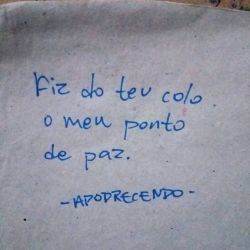 Fiz do teu colo
o meu ponto
de paz.
-APODRECENDO-